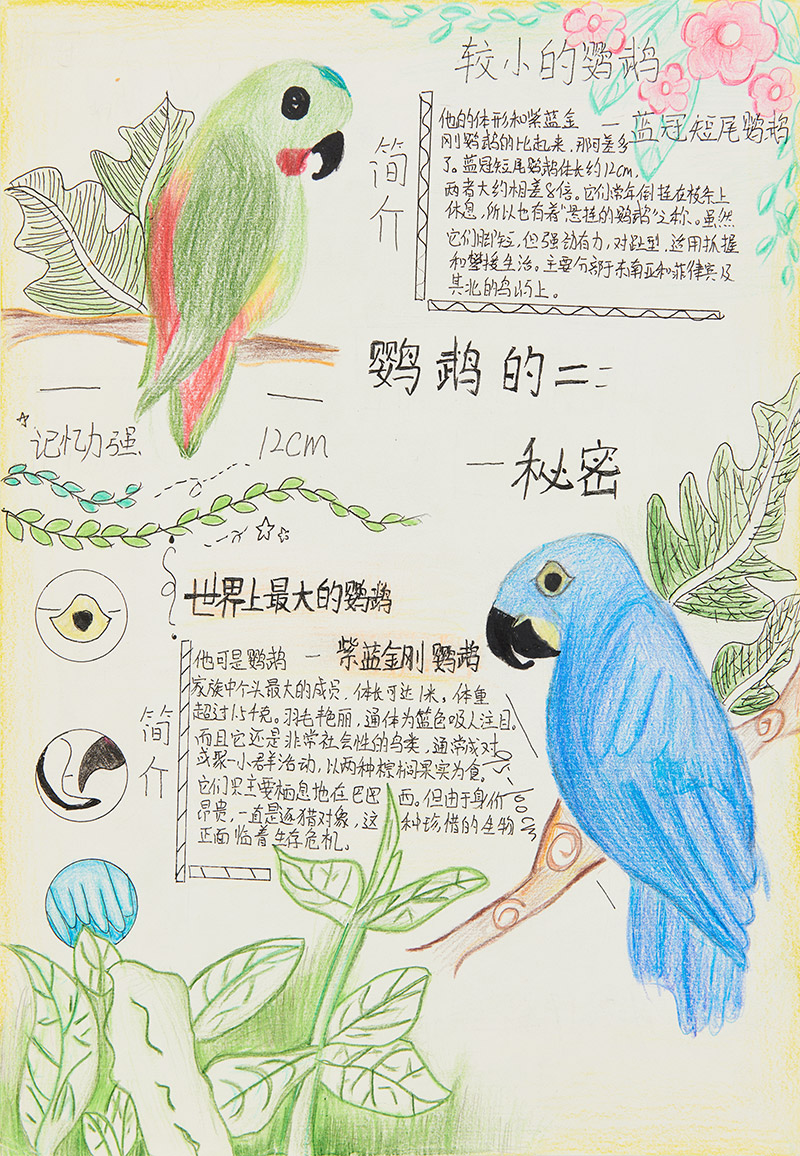 较小的鹦鹉
一 蓝冠短尾鹦鹉
简介
他的体形和紫蓝金
刚鹦鹉的比起来，那可差多
了。蓝冠短尾鹦鹉体长约12cm，
两者大约相差8倍。它们常年倒挂在枝条上
休息，所以也有着"悬挂的鹦鹉"之称。虽然
它们脚短，但强劲有力，对趾型，适用抓握
和攀援生活。主要分部于东南亚和菲律宾及
其北的鸟屿上。
鹦鹉的二三
一秘密
记忆力强
12cm
世界上最大的鹦鹉
一 紫蓝金刚鹦鹉
简介
他可是鹦鹉
家族中个头最大的成员，体长可达1米，体重
超过1.5千克。羽毛艳丽，通体为篮色吸人注目。
而且它还是非常社会性的鸟类，通常成对
或聚一小群活动，以两种棕榈果实为食。
它们只主要栖息地在巴西。但由于身价
昂贵，一直是逐猎对象，这种珍惜的生物
正面临着生存危机。